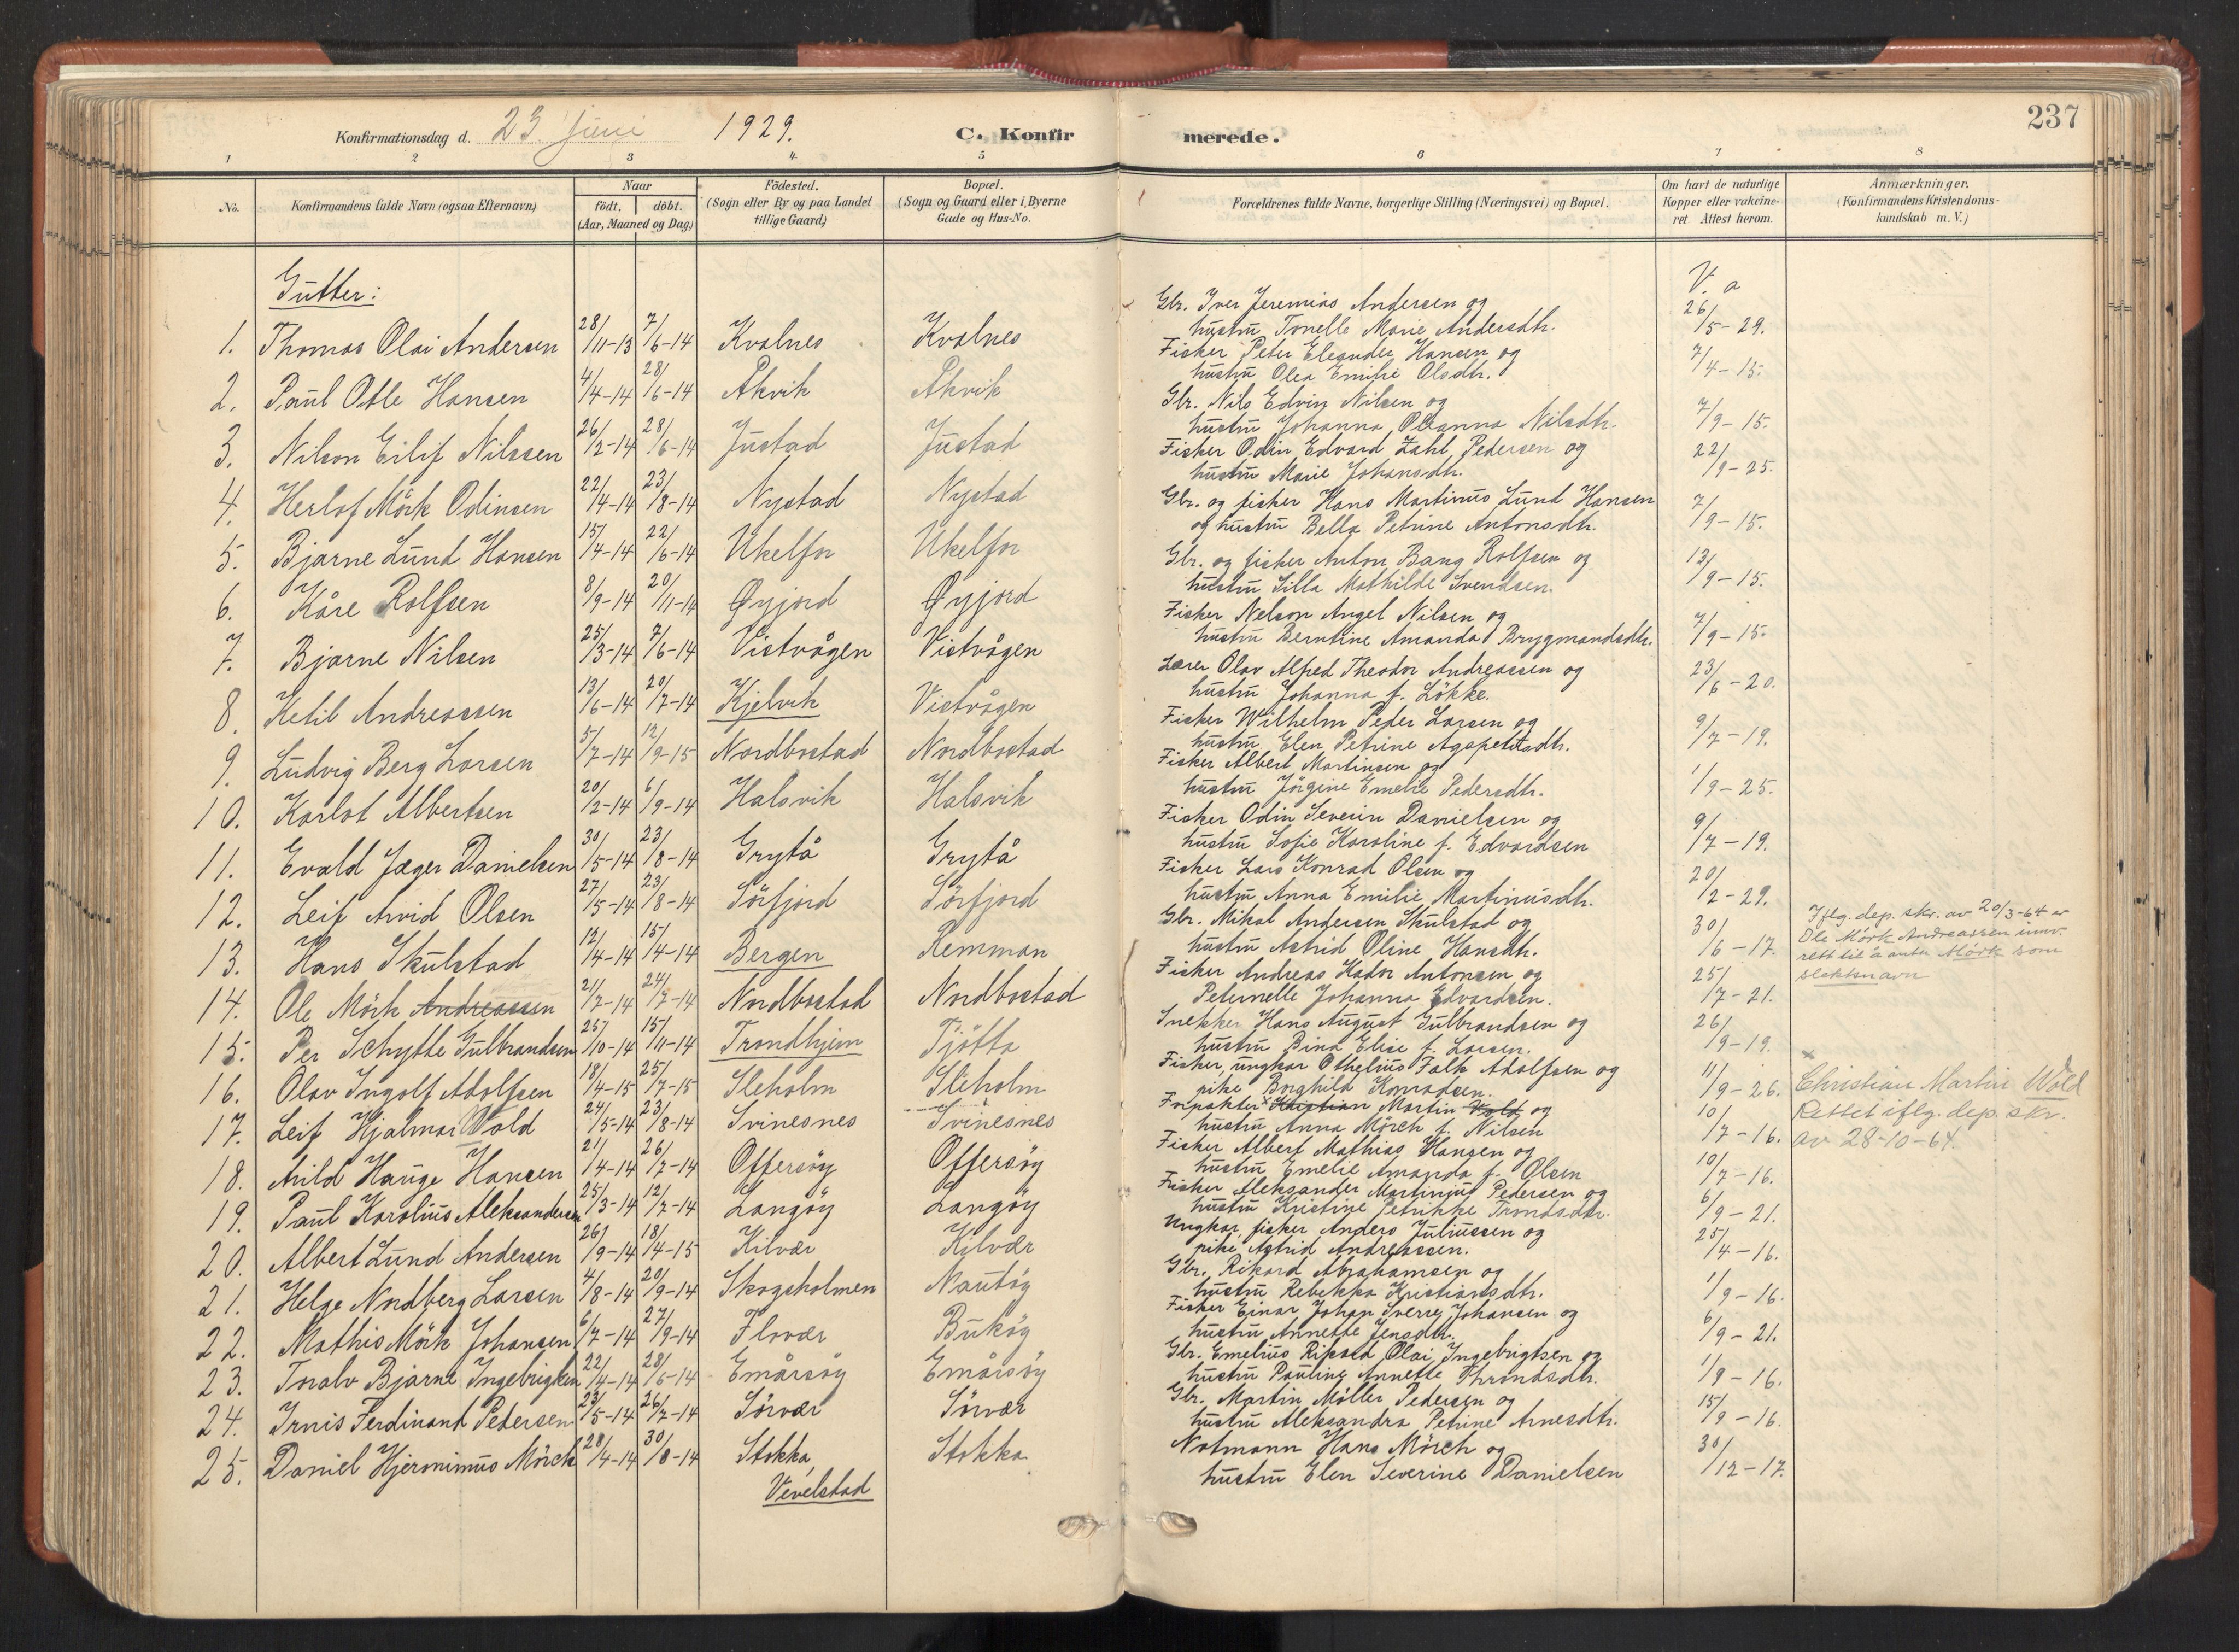 237
Konfirmationsdag d. 23 juni 1929. C. Konfirmerede.
1 2 3 4. 5 6 7 8
No. Konfirmandens fulde Navn (ogsaa Efternavn) Naar födt. döbt. (Aar, Maaned og Dag) Födested. (Sogn eller By og paa Landet tillige Gaard) Bopæl. (Sogn og Gaard eller i Byerne Gade og Hus-No. Forældrenes fulde Navne, borgerlige Stilling (Næringsvei) og Bopæl. Om havt de naturlige Kopper eller vakcineret. Attest herom. Anmærkninger. (Konfirmandens Kristendomskundskab m. V.)
Gutter: V. a
1. Thomas Olai Andersen 28/11-13 7/6-14 Kvalnes Kvalnes Gbr. Iver Jeremias Andersen og 26/5-29.
hustru Tonelle Marie Andersdtr.
2. Paul Otle Hansen 4/4-14 28/6-14 Åkvik Åkvik Fisker Peter Eleander Hansen og 7/4-15.
hustru Olea Emilie Olsdtr.
3. Nilson Eilif Nilssen 26/2-14 28/6-14 Justad Justad Gbr. Nils Edvin Nilsen og 7/9-15.
hustru Johanna Oleanna Nilsdtr.
4. Herlof Mörk Odinsen 22/4-14 23/8-14 Nystad Nystad Fisker Odin Edvard Zahl Pedersen og 22/9-25.
hustru Marie Johansdtr.
5. Bjarne Lund Hansen 15/4-14 22/6-14 Ukelfor Ukelfor Gbr. og fisker Hans Martinus Lund Hansen 7/9-15.
og hustru Bella Petrine Antonsdtr.
6. Kåre Rolfsen 8/9-14 20/11-14 Øyjord Øyjord Gbr. og fisker Anton Bang Rolfsen og 13/9-15.
hustru Silla Mathilde Svendsen.
7. Bjarne Nilsen 25/3-14 7/6-14 Vistvågen Vistvågen Fisker Nelson Angel Nilsen og 7/9-15.
hustru Berntine Amanda Brygmandsdtr.
8. Ketil Andreassen 13/6-14 20/7-14 Kjelvik Vistvågen Lærer Olav Alfred Theodor Andreassen og 23/6-20.
hustru Johanna f. Lökke.
9. Ludvig Berg Larsen 5/7-14 12/9-15 Nordbostad Nordbostad Fisker Wilhelm Peder Larsen og 9/7-19.
hustru Elen Petrine Agapetusdtr.
10. Karlot Albertsen 20/2-14 6/9-14 Halsvik Halsvik Fisker Albert Martinsen og 1/9-25.
hustru Jörgine Emelie Pedersdtr.
11. Evald Jæger Danielsen 30/5-14 23/8-14 Grytå Grytå Fisker Odin Severin Danielsen og 9/7-19.
hustru Sofie Karoline f. Edvardsen
12. Leif Arvid Olsen 27/5-14 23/8-14 Sörfjord Sörfjord Fisker Lars Konrad Olsen og 20/2-29.
hustru Anna Emilie Martinusdtr.
13. Hans Skulstad 12/4-14 15/4-14 Bergen Remman Gbr. Mikal Andersen Skulstad og 30/6-17.
hustru Astrid Oline Hansdtr.
14. Ole Mörk Andreassen 21/2-14 24/7-14 Nordbostad Nordbostad Fisker Andreas Hador Antonsen og 25/7-21. Iflg. dep. skr. av 20/3-64 er
Peternelle Johanna Edvardsen. Ole Mörk Andreassen innv. rett til å anta Mörk som slektsnavn
15. Per Schytte Gulbrandsen 25/10-14 15/11-14 Trondhjem Tjötta Snekker Hans August Gulbrandsen og 26/9-19.
hustru Dina Elise f. Larsen.
16. Olav Ingolf Adolfsen 18/4-15 25/7-15 Sleholm Sleholm Fisker, ungkar Othelius Falk Adolfsen og 11/9-26.
pike Borghild Konradsen.
17. Leif Hjalmar Wold 24/5-14 23/8-14 Svinesnes Svinesnes Forpakter x Kristian Martin Vold og 10/7-16. x Christian Martin Wold
hustru Anna Mörch f. Nilsen Rettet iflg. dep. skr. av 28-10-64.
18. Arild Hauge Hansen 21/4-14 26/7-14 Offersöy Offersöy Fisker Albert Mathias Hansen og 10/7-16.
hustru Emelie Amanda f. Olsen
19. Paul Karolius Aleksandersen 25/3-14 12/7-14 Langöy Langöy Fisker Aleksander Martinius Pedersen og 6/9-21.
hustru Kristine Petrikke Trondsdtr.
20. Albert Lund Andersen 26/9-14 18/4-15 Kilvær Kilvær Ungkar, fisker Anders Juliussen og 25/4-16.
pike Astrid Andreassen.
21. Helge Nordberg Larsen 4/8-14 20/9-14 Skogsholmen Nautöy Gbr. Rikard Abrahamsen og 1/9-16.
hustru Rebekka Kristiansdtr.
22. Mathis Mörk Johansen 6/7-14 27/9-14 Flovær Buköy Fisker Einar Johan Sverre Johansen og 6/9-21.
hustru Annette Jensdtr.
23. Toralv Bjarne Ingebrigtsen 22/4-14 28/6-14 Emårsöy Emårsöy Gbr. Emelius Rikard Olai Ingebrigtsen og 1/9-16.
hustru Pauline Annette Throndsdtr.
24. Irnis Ferdinand Pedersen 23/5-14 26/7-14 Sörvær Sörvær Gbr. Martin Möller Pedersen og 15/9-16.
hustru Aleksandra Petrine Arnesdtr.
25. Daniel Hjeronimus Mörch 28/4-14 30/8-14 Stokka, Vevelstad Stokka Notmann Hans Mörch og 30/12-17.
hustru Elen Severine Danielsen